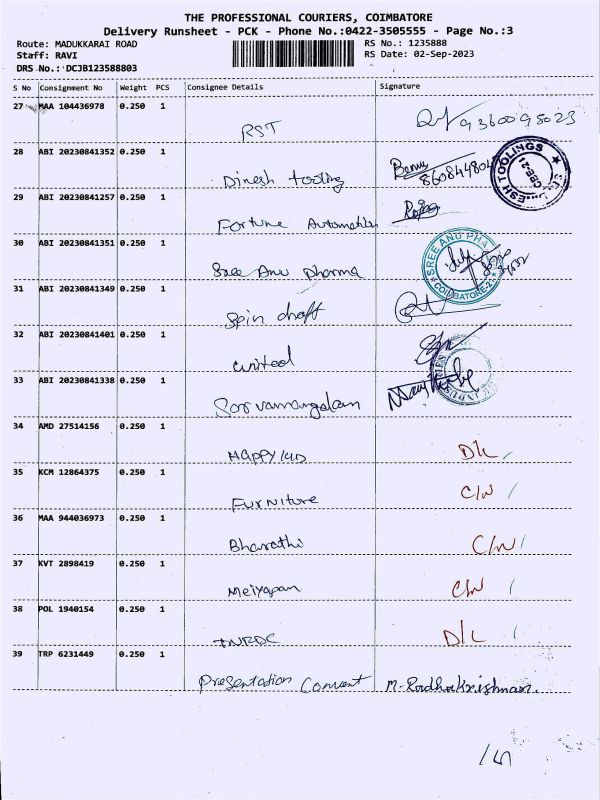 THE PROFESSIONAL COURIERS, COIMBATORE
Delivery Runsheet - PCK - Phone No.:0422-3505555 - Page No.:3
Route: MADUKKARAI ROAD RS No.: 1235888
Staff: RAVI RS Date: 02-Sep-2023
DRS No.: DCJB123588803
S No Consignment No Weight PCS Consignee Details Signature
27 MAA 104436978 0.250 1
RST 9360098023
28 ABI 20230841352 0.250 1
Dinesh tooling
TOOLINGS
29 ABI 20230841257 0.250 1
Fortune Automation
30 ABI 20230841351 0.250 1
Sree Anu pharma
SREE ANU PHA
COIMBATORE-2
31 ABI 20230841349 0.250 1
Spin draft
32 ABI 20230841401 0.250 1
United
33 ABI 20230841338 0.250 1
Sarvamangalam
34 AMD 27514156 0.250 1
HAPPY KID D/L
35 KCM 12864375 0.250 1
Furniture C/N
36 MAA 944036973 0.250 1
Bharathi C/N
37 KVT 2898419 0.250 1
Meiyapan C/N
38 POL 1940154 0.250 1
TNRDC D/L
39 TRP 6231449 0.250 1
Presentation Convent M-Radhakrishnan.